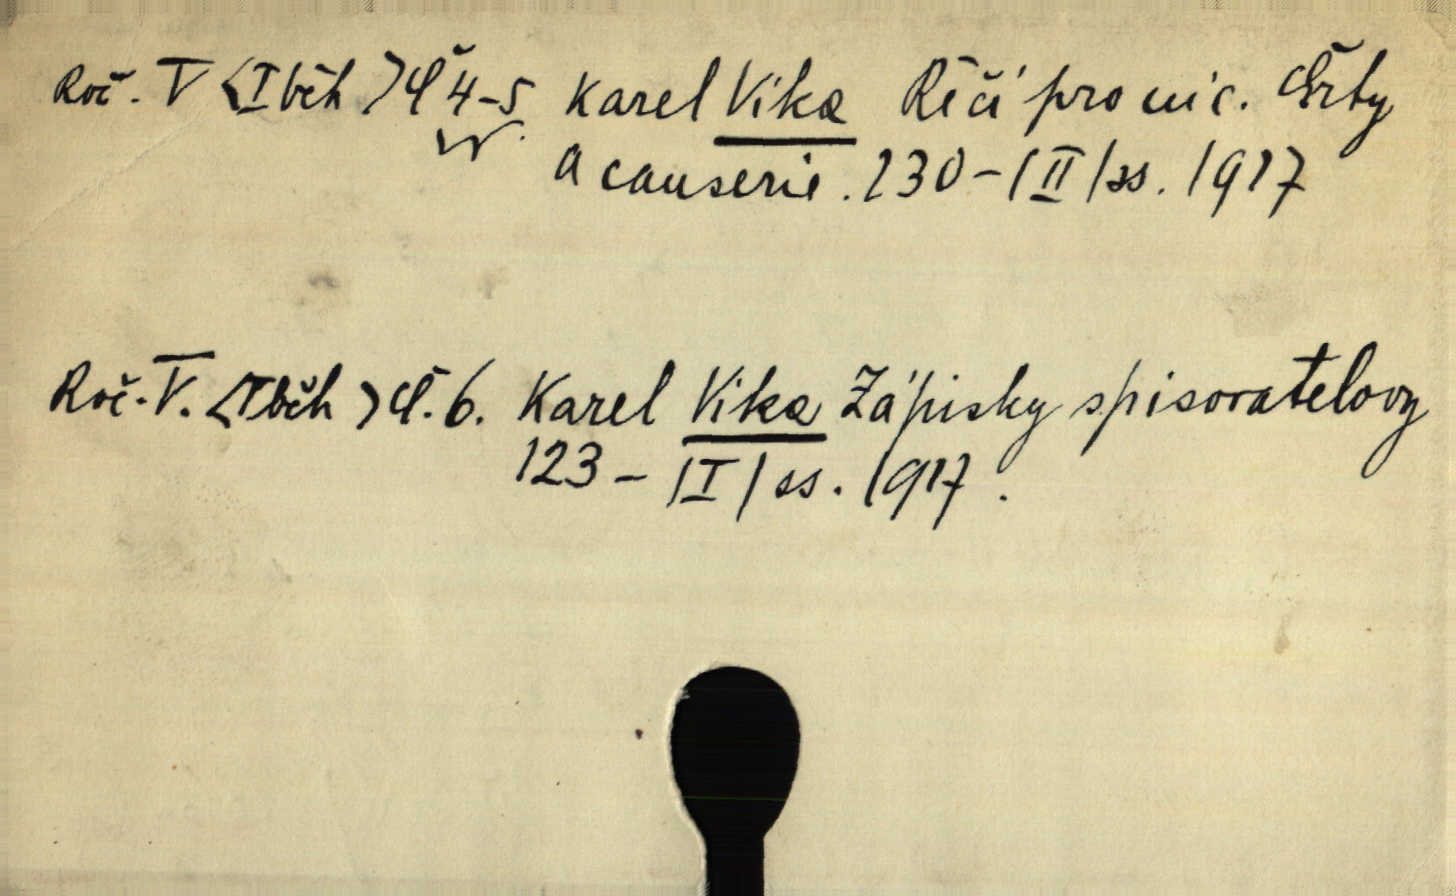 Roč. V <I běh > Č 4-5 Karel Vika Řečí pro nic. Črty
a causerie. 130 - | II | ss. 1917
Roč. V. <I běh > Č. 6. Karel Vika Zápisky spisovatelovy
123 - | I | ss. 1917.